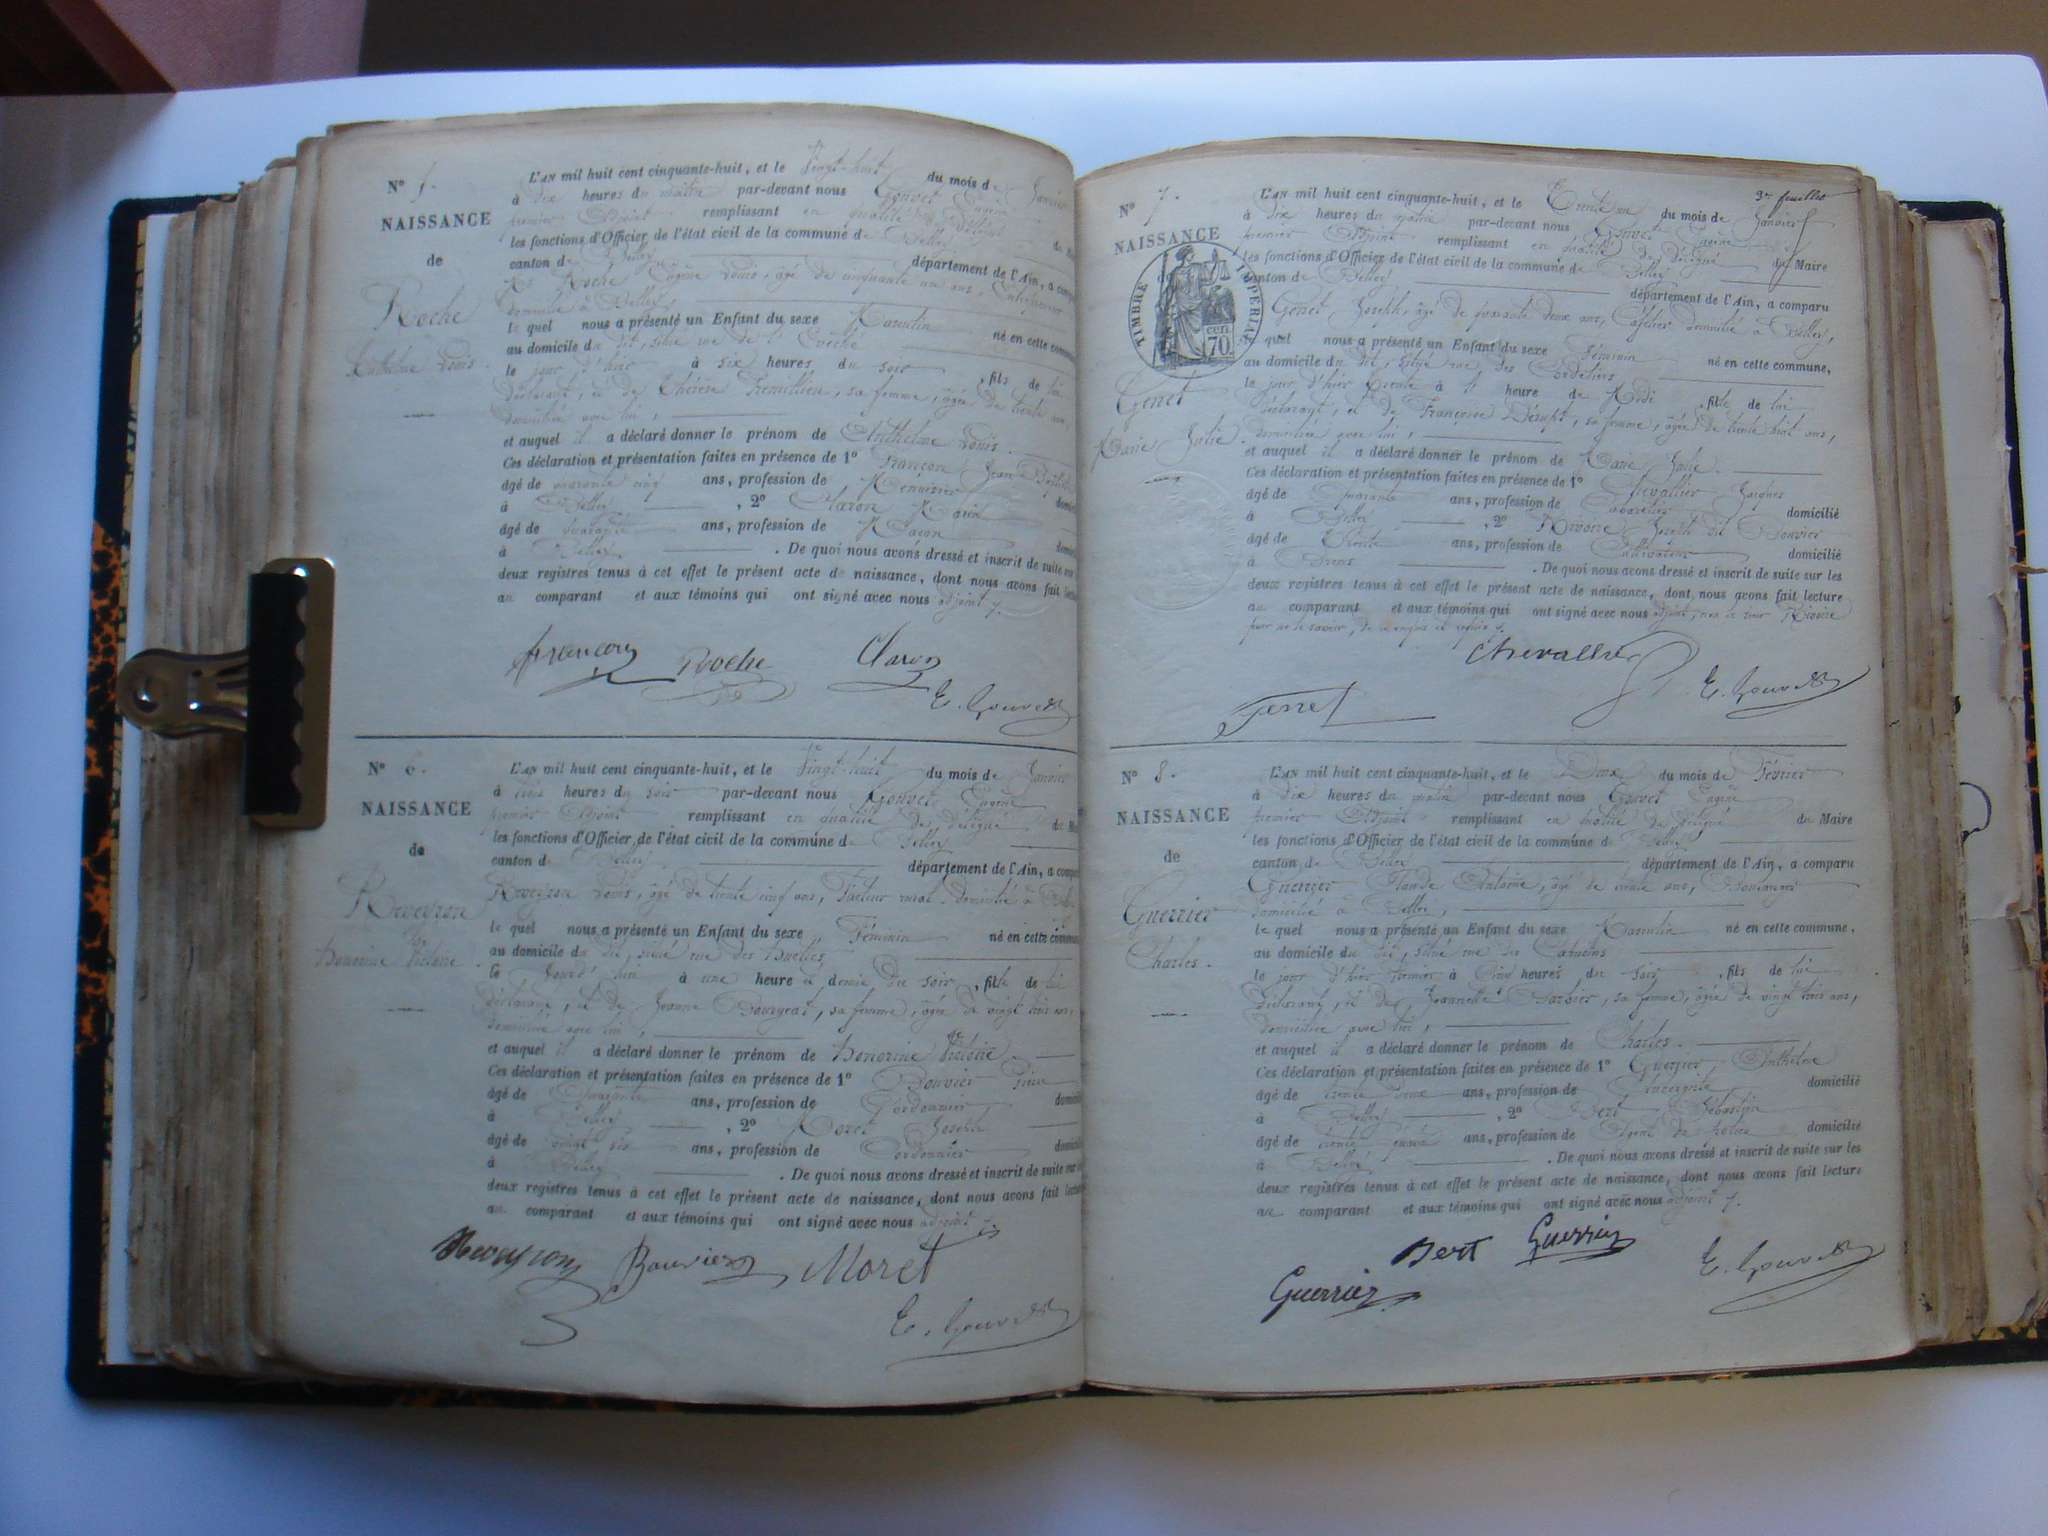 N° 5.
NAISSANCE
de
Roche
Anthelme Louis.
L'AN mil huit cent cinquante-huit, et le Vingt-huit du mois de Janvier
à dix heures du matin par-devant nous Gouvet Eugène
premier Adjoint remplissant en qualité de délégué du Maire
les fonctions d'Officier de l'état civil de la commune de Belley
canton de Belley département de l'Ain, a comparu
Roche Eugène Louis, âgé de cinquante un ans, Entrepreneur
domicilié à Belley
le quel nous a présenté un Enfant du sexe Masculin né en cette commune
au domicile du dit, situé rue de l'Evêché
le jour d'hier à six heures du soir, fils de lui
déclarant, et de Thérèse Tremillien, sa femme, âgée de trente ans,
domiciliée avec lui,
et auquel il a déclaré donner le prénom de Anthelme Louis.
Ces déclaration et présentation faites en présence de 1° Françon Jean
âgé de quarante cinq ans, profession de Menuisier
à Belley, 2° Claron Marin
âgé de quarante ans, profession de Maçon
à Belley. De quoi nous avons dressé et inscrit de suite sur
deux registres tenus à cet effet le présent acte de naissance, dont nous avons fait lecture
au comparant et aux témoins qui ont signé avec nous adjoint
françon Roche Claron
E. Gouvet
N° 6.
NAISSANCE
de
Reveyron
Honorine Victoire.
L'AN mil huit cent cinquante-huit, et le Vingt-huit du mois de Janvier
à trois heures du soir par-devant nous Gouvet Eugène
premier Adjoint remplissant en qualité de délégué du Maire
les fonctions d'Officier de l'état civil de la commune de Belley
canton de Belley département de l'Ain, a comparu
Reveyron Louis, âgé de trente cinq ans, Facteur rural, domicilié à
le quel nous a présenté un Enfant du sexe Féminin né en cette commune
au domicile du dit, situé rue des
le jour d'hier à une heure et demie du soir, fille de lui
déclarant, et de Jeanne Bourgeat, sa femme, âgée de vingt trois ans,
domiciliée avec lui,
et auquel il a déclaré donner le prénom de Honorine Victoire.
Ces déclaration et présentation faites en présence de 1° Bouvier
âgé de quarante ans, profession de Cordonnier
à Belley, 2° Moret Joseph
âgé de vingt six ans, profession de Cordonnier
à Belley. De quoi nous avons dressé et inscrit de suite sur
deux registres tenus à cet effet le présent acte de naissance, dont nous avons fait lecture
au comparant et aux témoins qui ont signé avec nous adjoint
Reveyron Bouvier Moret
E. Gouvet
3me feuillet
N° 7.
NAISSANCE
de
TIMBRE IMPERIAL
70 cen.
Genet
Marie Julie.
L'AN mil huit cent cinquante-huit, et le Trente un du mois de Janvier
à dix heures du matin par-devant nous Gouvet Eugène
premier Adjoint remplissant en qualité de délégué du Maire
les fonctions d'Officier de l'état civil de la commune de Belley
canton de Belley département de l'Ain, a comparu
Genet, Joseph, âgé de quarante deux ans, Cafetier domicilié à Belley,
le quel nous a présenté un Enfant du sexe Féminin né en cette commune,
au domicile du dit, situé rue des Cordeliers
le jour d'hier trente à heure de Midi, fille de lui
déclarant, et de Françoise, sa femme, âgée de trente huit ans,
domiciliée avec lui,
et auquel il a déclaré donner le prénom de Marie Julie.
Ces déclaration et présentation faites en présence de 1° Chevallier Jacques
âgé de quarante ans, profession de Cabaretier domicilié
à Belley, 2° Rivoire Joseph dit Bouvier
âgé de trente ans, profession de Cultivateur domicilié
à Brens. De quoi nous avons dressé et inscrit de suite sur les
deux registres tenus à cet effet le présent acte de naissance, dont nous avons fait lecture
au comparant et aux témoins qui ont signé avec nous adjoint, non le sieur Rivoire
pour ne le savoir, de ce enquis et requis.
Chevallier
Genet E. Gouvet
N° 8.
NAISSANCE
de
Guerrier
Charles.
L'AN mil huit cent cinquante-huit, et le Deux du mois de Février
à dix heures du matin par-devant nous Gouvet Eugène
premier Adjoint remplissant en qualité de délégué du Maire
les fonctions d'Officier de l'état civil de la commune de Belley
canton de Belley département de l'Ain, a comparu
Guerrier Claude Antoine, âgé de trente ans, Boulanger
domicilié à Belley,
le quel nous a présenté un Enfant du sexe Masculin né en cette commune,
au domicile du dit, situé rue des Capucins
le jour d'hier premier à Cinq heures du soir, fils de lui
déclarant, et de Jeannette Barbier, sa femme, âgée de vingt trois ans,
domiciliée avec lui,
et auquel il a déclaré donner le prénom de Charles.
Ces déclaration et présentation faites en présence de 1° Guerrier Anthelme
âgé de trente deux ans, profession de Aubergiste domicilié
à Belley, 2° Bert Sébastien
âgé de trente ans, profession de Agent de police domicilié
à Belley. De quoi nous avons dressé et inscrit de suite sur les
deux registres tenus à cet effet le présent acte de naissance, dont nous avons fait lecture
au comparant et aux témoins qui ont signé avec nous adjoint
Bert Guerrier
Guerrier E. Gouvet